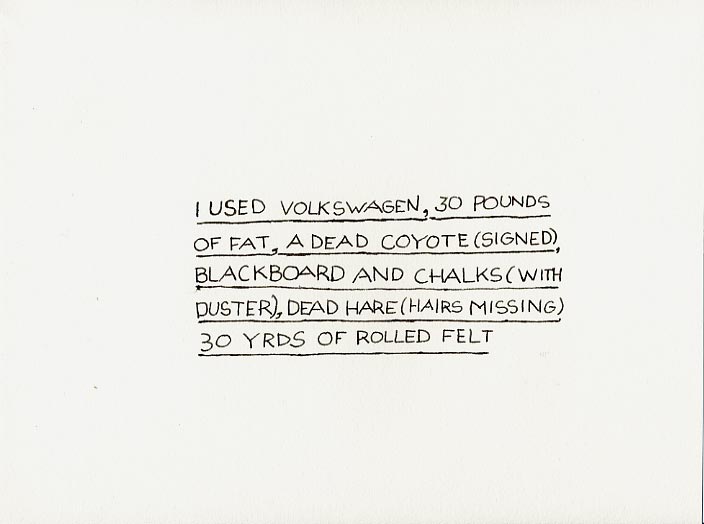 I USED VOLKSWAGEN, 30 POUNDS
OF FAT, A DEAD COYOTE (SIGNED),
BLACKBOARD AND CHALKS (WITH
DUSTER), DEAD HARE (HAIRS MISSING)
30 YRDS OF ROLLED FELT